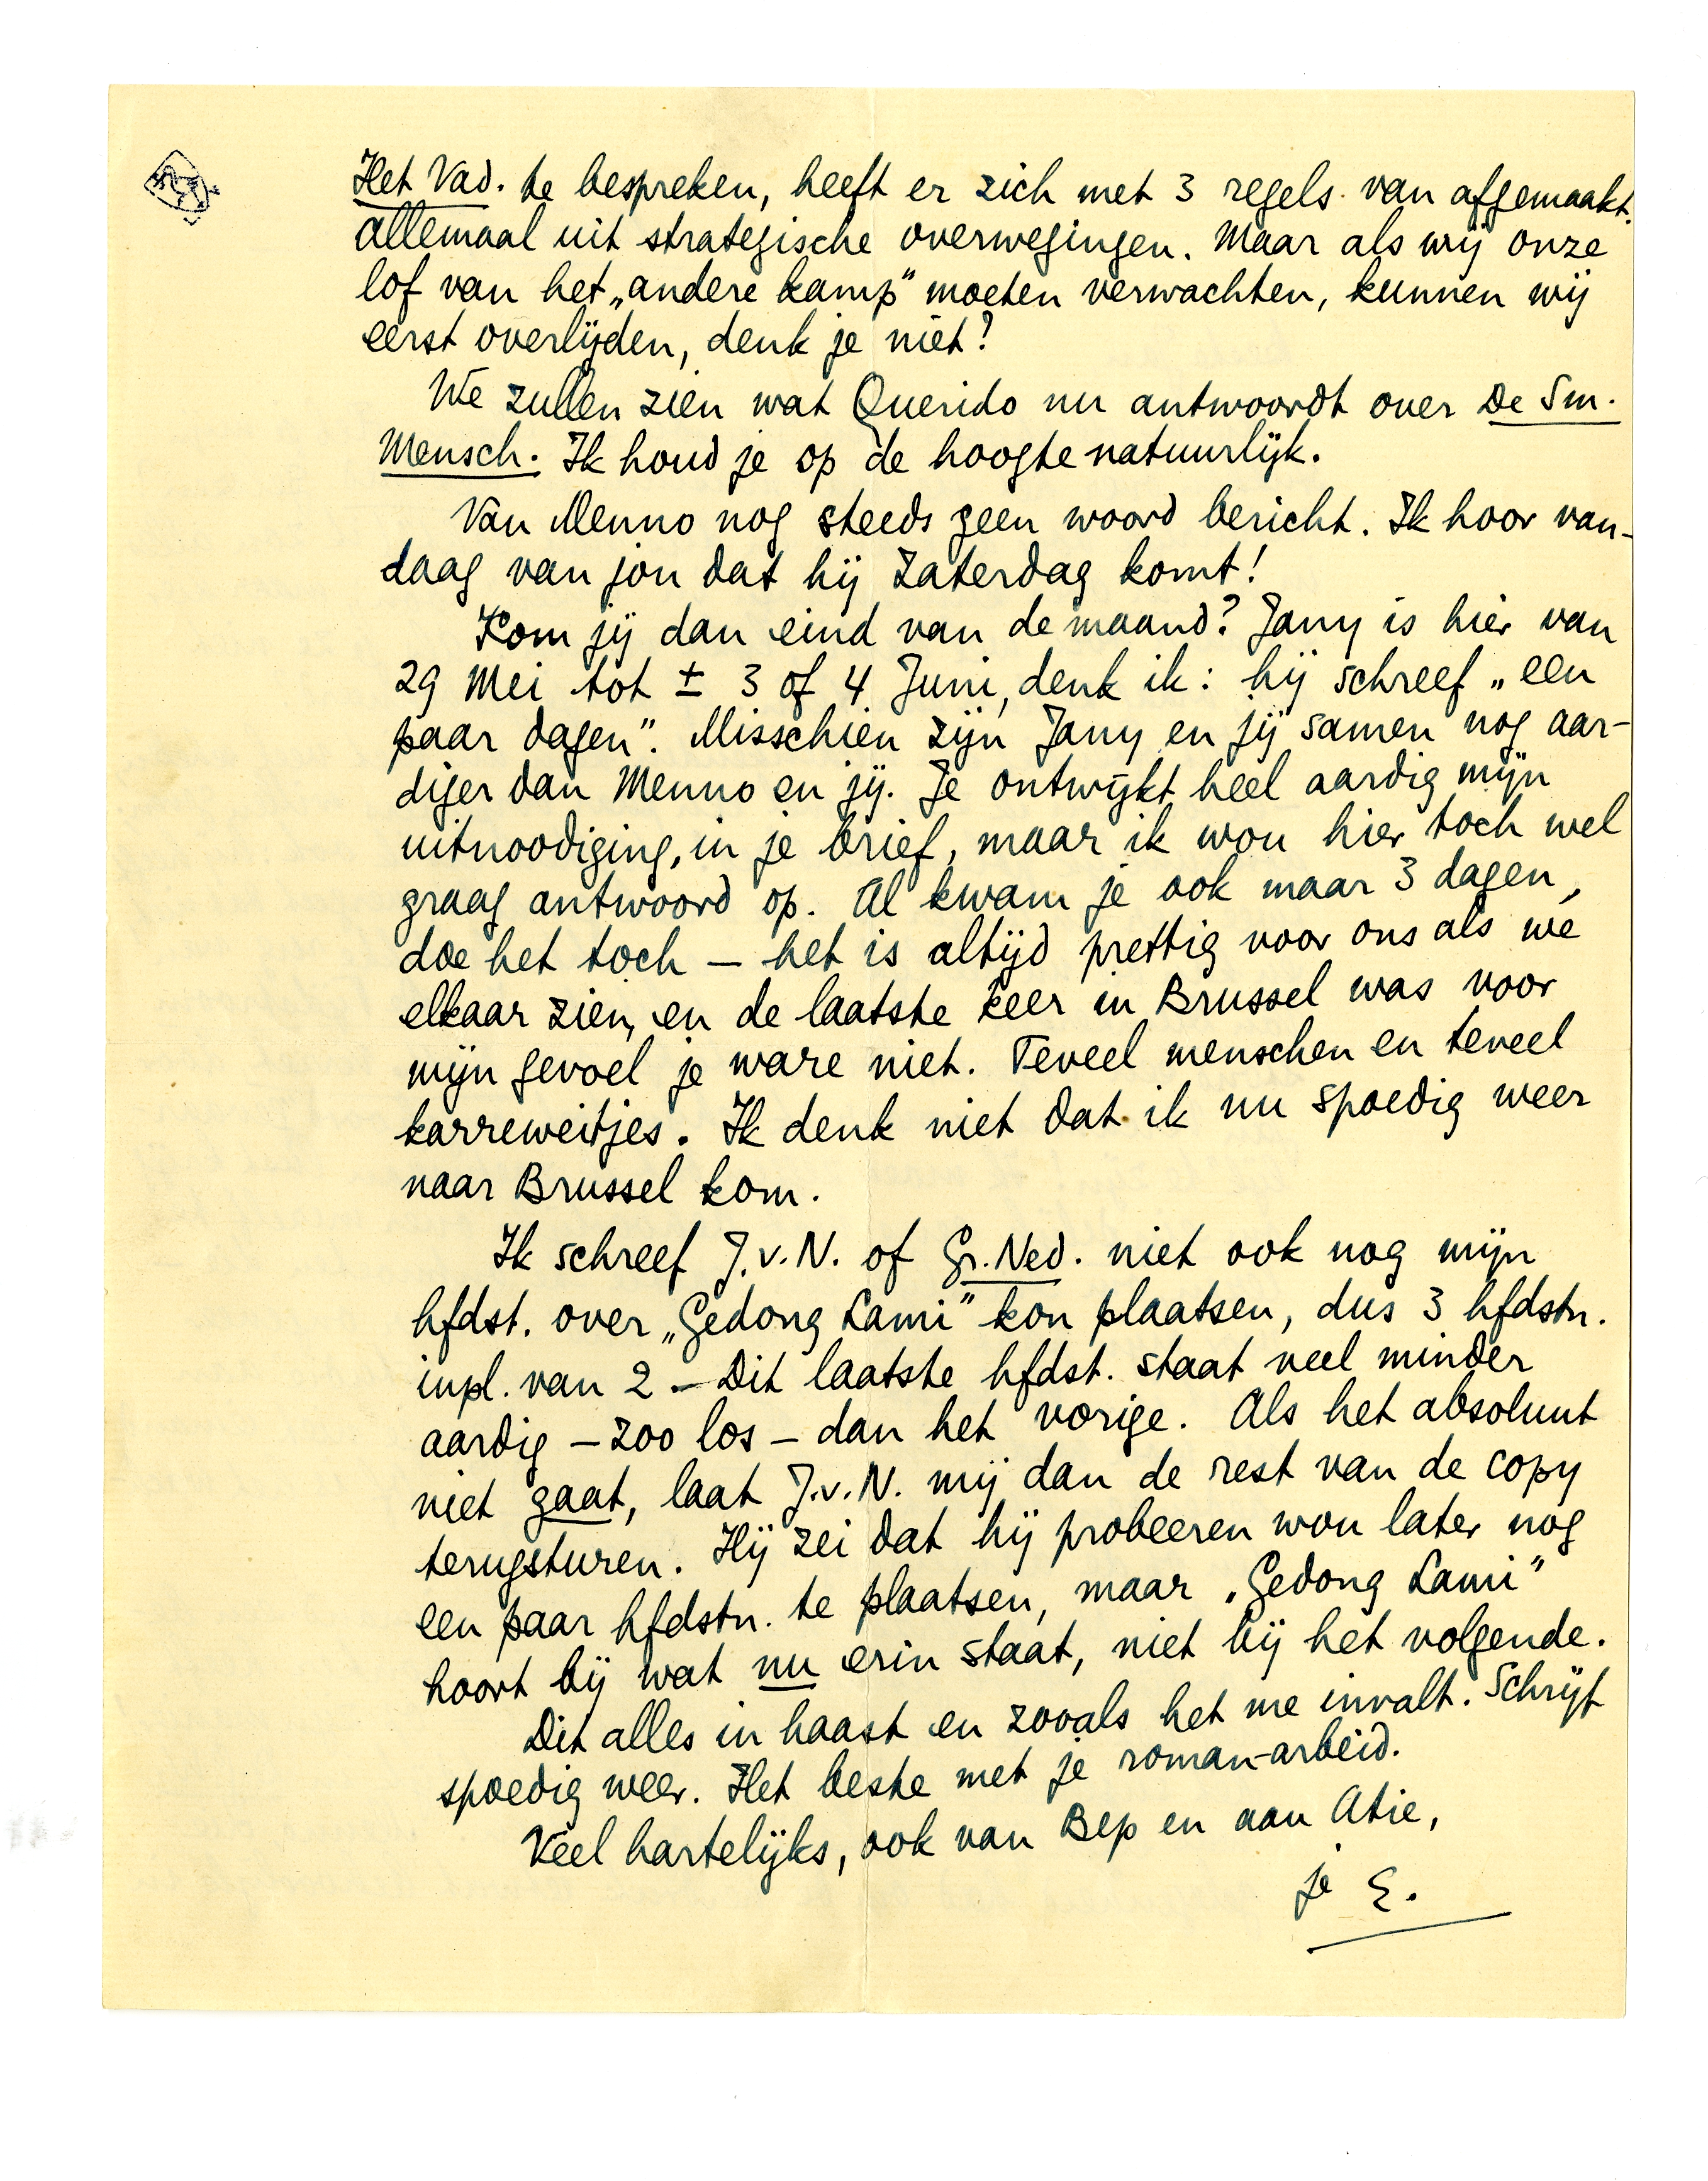 Het Vad. te bespreken, heeft er zich met 3 regels van afgemaakt.
Allemaal uit strategische overwegingen. Maar als wij onze
lof van het „andere kamp" moeten verwachten, kunnen wij
eerst overlijden, denk je niet?
We zullen zien wat Querido nu antwoordt over De Sm.
Mensch. Ik houd je op de hoogte natuurlijk.
Van Menno nog steeds geen woord bericht. Ik hoor van-
daag van jou dat hij Zaterdag komt!
Kom jij dan eind van de maand? Jany is hier van
29 Mei tot ± 3 of 4 Juni, denk ik: hij schreef „een
paar dagen". Misschien zijn Jany en jij samen nog aar-
diger dan Menno en jij. Je ontwijkt heel aardig mijn
uitnoodiging, in je brief, maar ik wou hier toch wel
graag antwoord op. Al kwam je ook maar 3 dagen,
doe het toch — het is altijd prettig voor ons als we
elkaar zien, en de laatste keer in Brussel was voor
mijn gevoel je ware niet. Teveel menschen en teveel
karreweitjes. Ik denk niet dat ik nu spoedig weer
naar Brussel kom.
Ik schreef J.v.N. of Gr. Ned. niet ook nog mijn
hfdst. over „Gedong Lami" kon plaatsen, dus 3 hfdstn.
inpl. van 2. — Dit laatste hfdst. staat veel minder
aardig — zoo los — dan het vorige. Als het absoluut
niet gaat, laat J.v.N. mij dan de rest van de copy
terugsturen. Hij zei dat hij probeeren wou later nog
een paar hfdstn. te plaatsen, maar „Gedong Lami"
hoort bij wat nu erin staat, niet bij het volgende.
Dit alles in haast en zooals het me invalt. Schrijf
spoedig weer. Het beste met je roman-arbeid.
Veel hartelijks, ook van Bep en aan Atie,
je E.